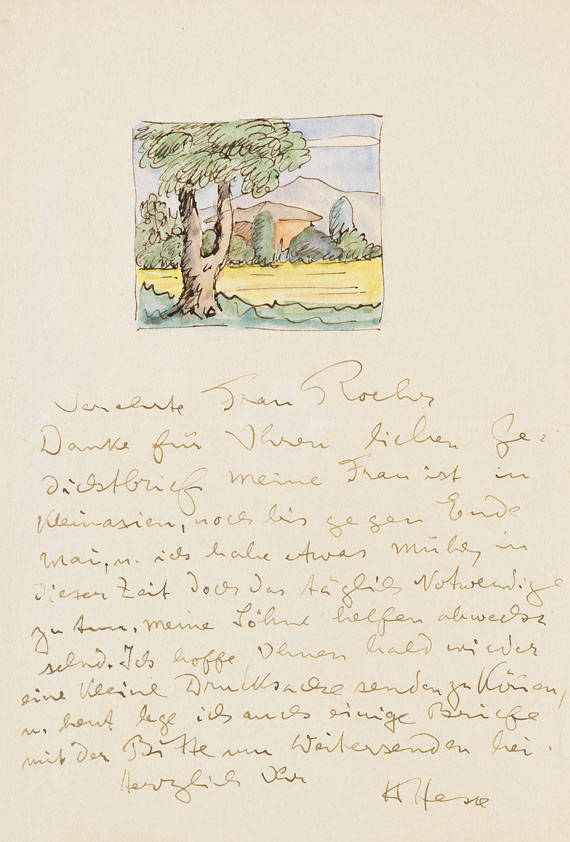 Verehrte Frau
Danke für Ihren lieben Ge-
dichtbrief meine Frau ist in
Kleinasien, noch bis gegen Ende
Mai, u. ich habe etwas Mühe, in
dieser Zeit doch das täglich Notwendige
zu tun. meine Söhne helfen abwech
selnd. Ich hoffe, Ihnen bald wieder
eine kleine Drucksache senden zu können,
u. heut lege ich auch einige Briefe
mit der Bitte um Weitersenden bei.
Herzlich Ihr
H Hesse